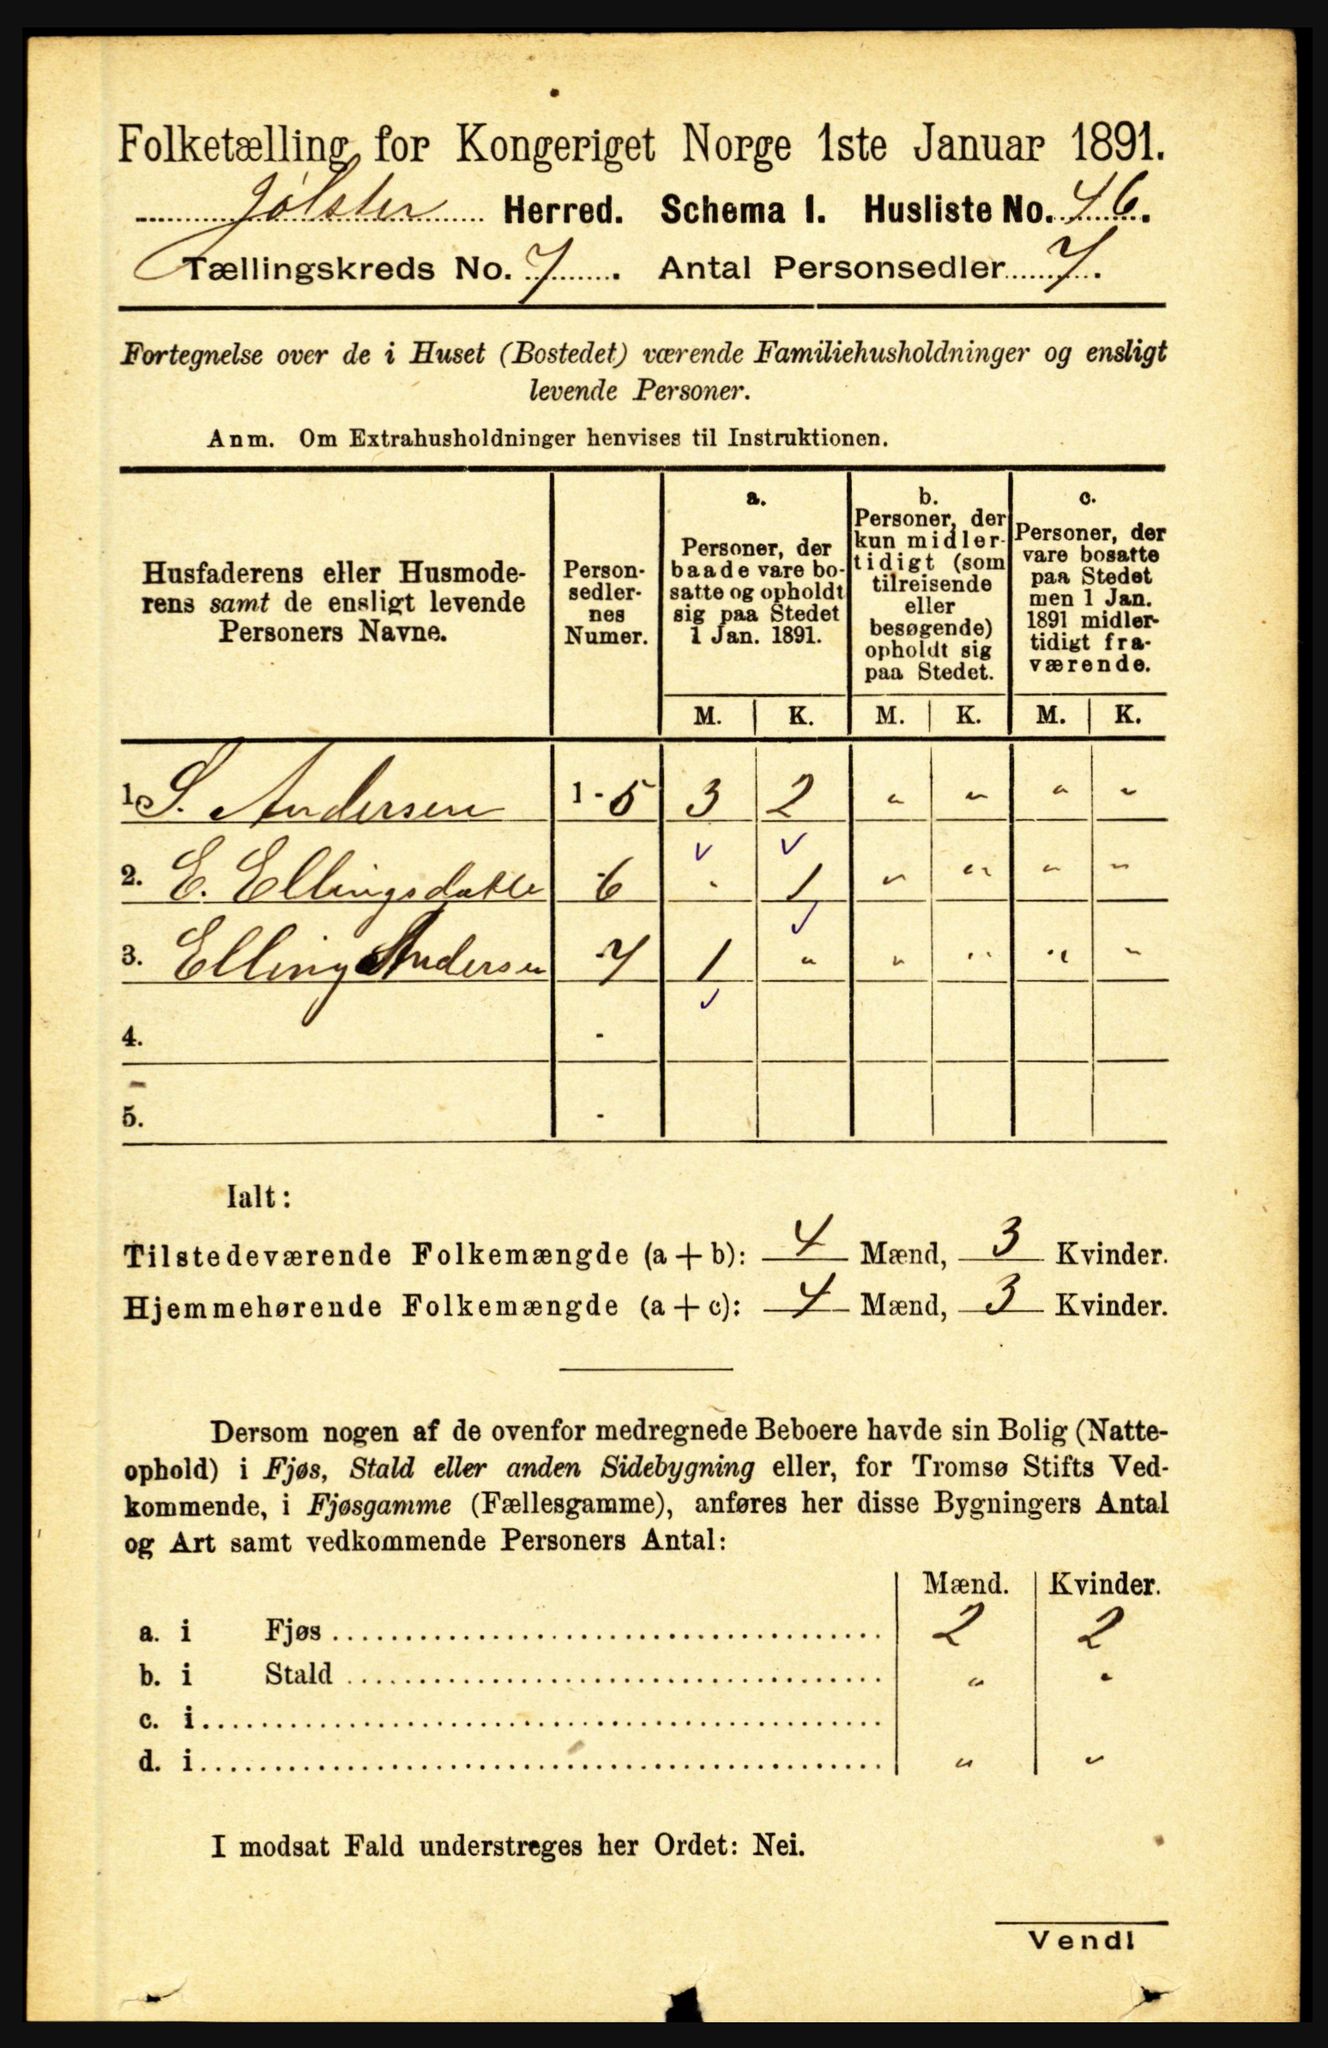 Folketælling for Kongeriget Norge 1ste Januar 1891.
Jølster Herred. Schema I. Husliste No. 46.
Tællingskreds No. 7. Antal Personsedler 7.
Fortegnelse over de i Huset (Bostedet) værende Familiehusholdninger og ensligt
levende Personer.
Anm. Om Extrahusholdninger henvises til Instruktionen.
Husfaderens eller Husmode-
rens samt de ensligt levende
Personers Navne.
Person-
sedler-
nes
Numer.
a.
Personer, der
baade vare bo-
satte og opholdt
sig paa Stedet
1 Jan. 1891.
b.
Personer, der
kun midler-
tidigt (som
tilreisende
eller
besøgende)
opholdt sig
paa Stedet.
c.
Personer, der
vare bosatte
paa Stedet
men 1 Jan.
1891 midler-
tidigt fra-
værende.
M. K. M. K. M. K.
1. S. Andersen 1-5 3 2 " " " "
2. E. Ellingsdatte -6 " 1 " " " "
3. Elling Andersen -7 1 " " " " "
4. -
5. -
Ialt:
Tilstedeværende Folkemængde (a + b): 4 Mænd, 3 Kvinder.
Hjemmehørende Folkemængde (a + c): 4 Mænd, 3 Kvinder.
Dersom nogen af de ovenfor medregnede Beboere havde sin Bolig (Natte-
ophold) i Fjøs, Stald eller anden Sidebygning eller, for Tromsø Stifts Ved-
kommende, i Fjøsgamme (Fællesgamme), anføres her disse Bygningers Antal
og Art samt vedkommende Personers Antal:
Mænd. Kvinder.
a. i Fjøs 2 2
b. i Stald " "
c. i
d. i " "
I modsat Fald understreges her Ordet: Nei.
Vend!